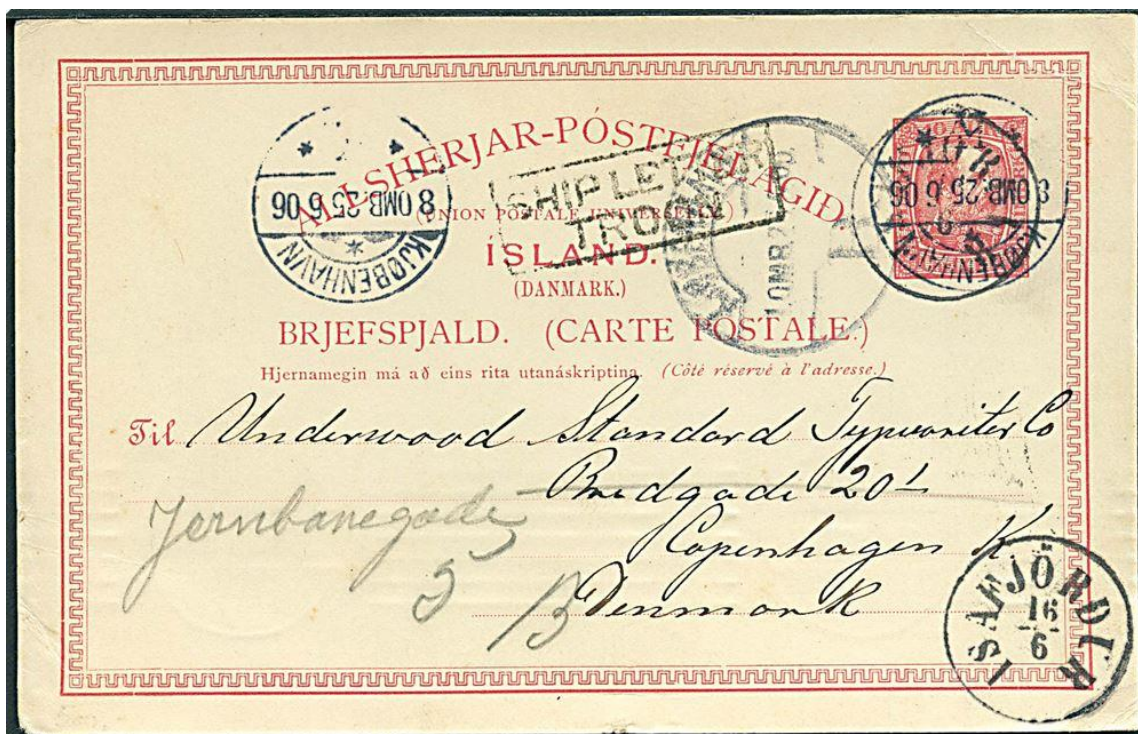 ALLSHERJAR-PÓSTFJELAGIÐ.
(UNION POSTALE UNIVERSELLE.)
ÍSLAND.
(DANMARK.)
BRJEFSPJALD. (CARTE POSTALE.)
Hjernamegin má að eins rita utanáskriptina. (Côté réservé à l'adresse.)
SHIP LETTER
KJØBENHAVN
8 OMB. 25 6 06
KJØBENHAVN
8 OMB. 25 6 06
1 OMB
Til Underwood Standard Typewriter Co
Bredgade 20
Copenhagen K
Denmark
Jernbanegade
5
B
ISAFJÖRDUR
16
6